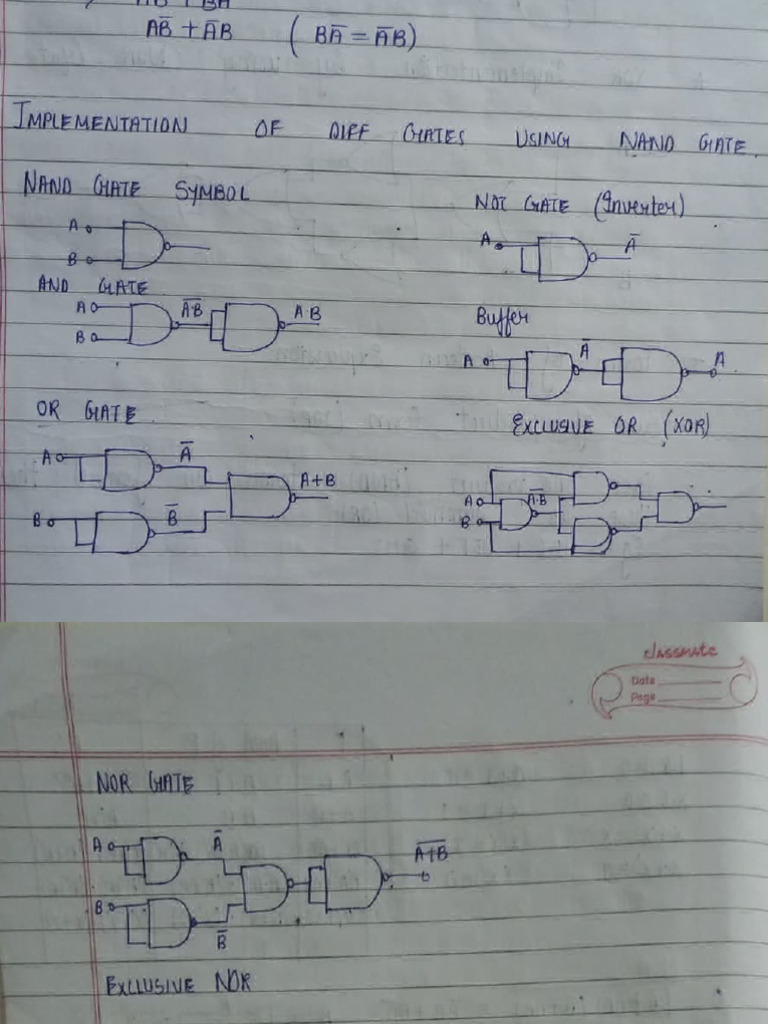 AB̅ + A̅B ( BA̅ = A̅B)
IMPLEMENTATION OF DIFF GATES USING NAND GATE.
NAND GATE SYMBOL
A
B
NOT GATE (Inverter)
A A̅
AND GATE
A A̅·̅B̅ A·B
B
Buffer
A A̅ A
OR GATE
A A̅ A+B
B B̅
EXCLUSIVE OR (XOR)
A A̅·̅B̅
B
classmate
Date
Page
NOR GATE
A A̅ A̅+̅B̅
B B̅
EXCLUSIVE NOR